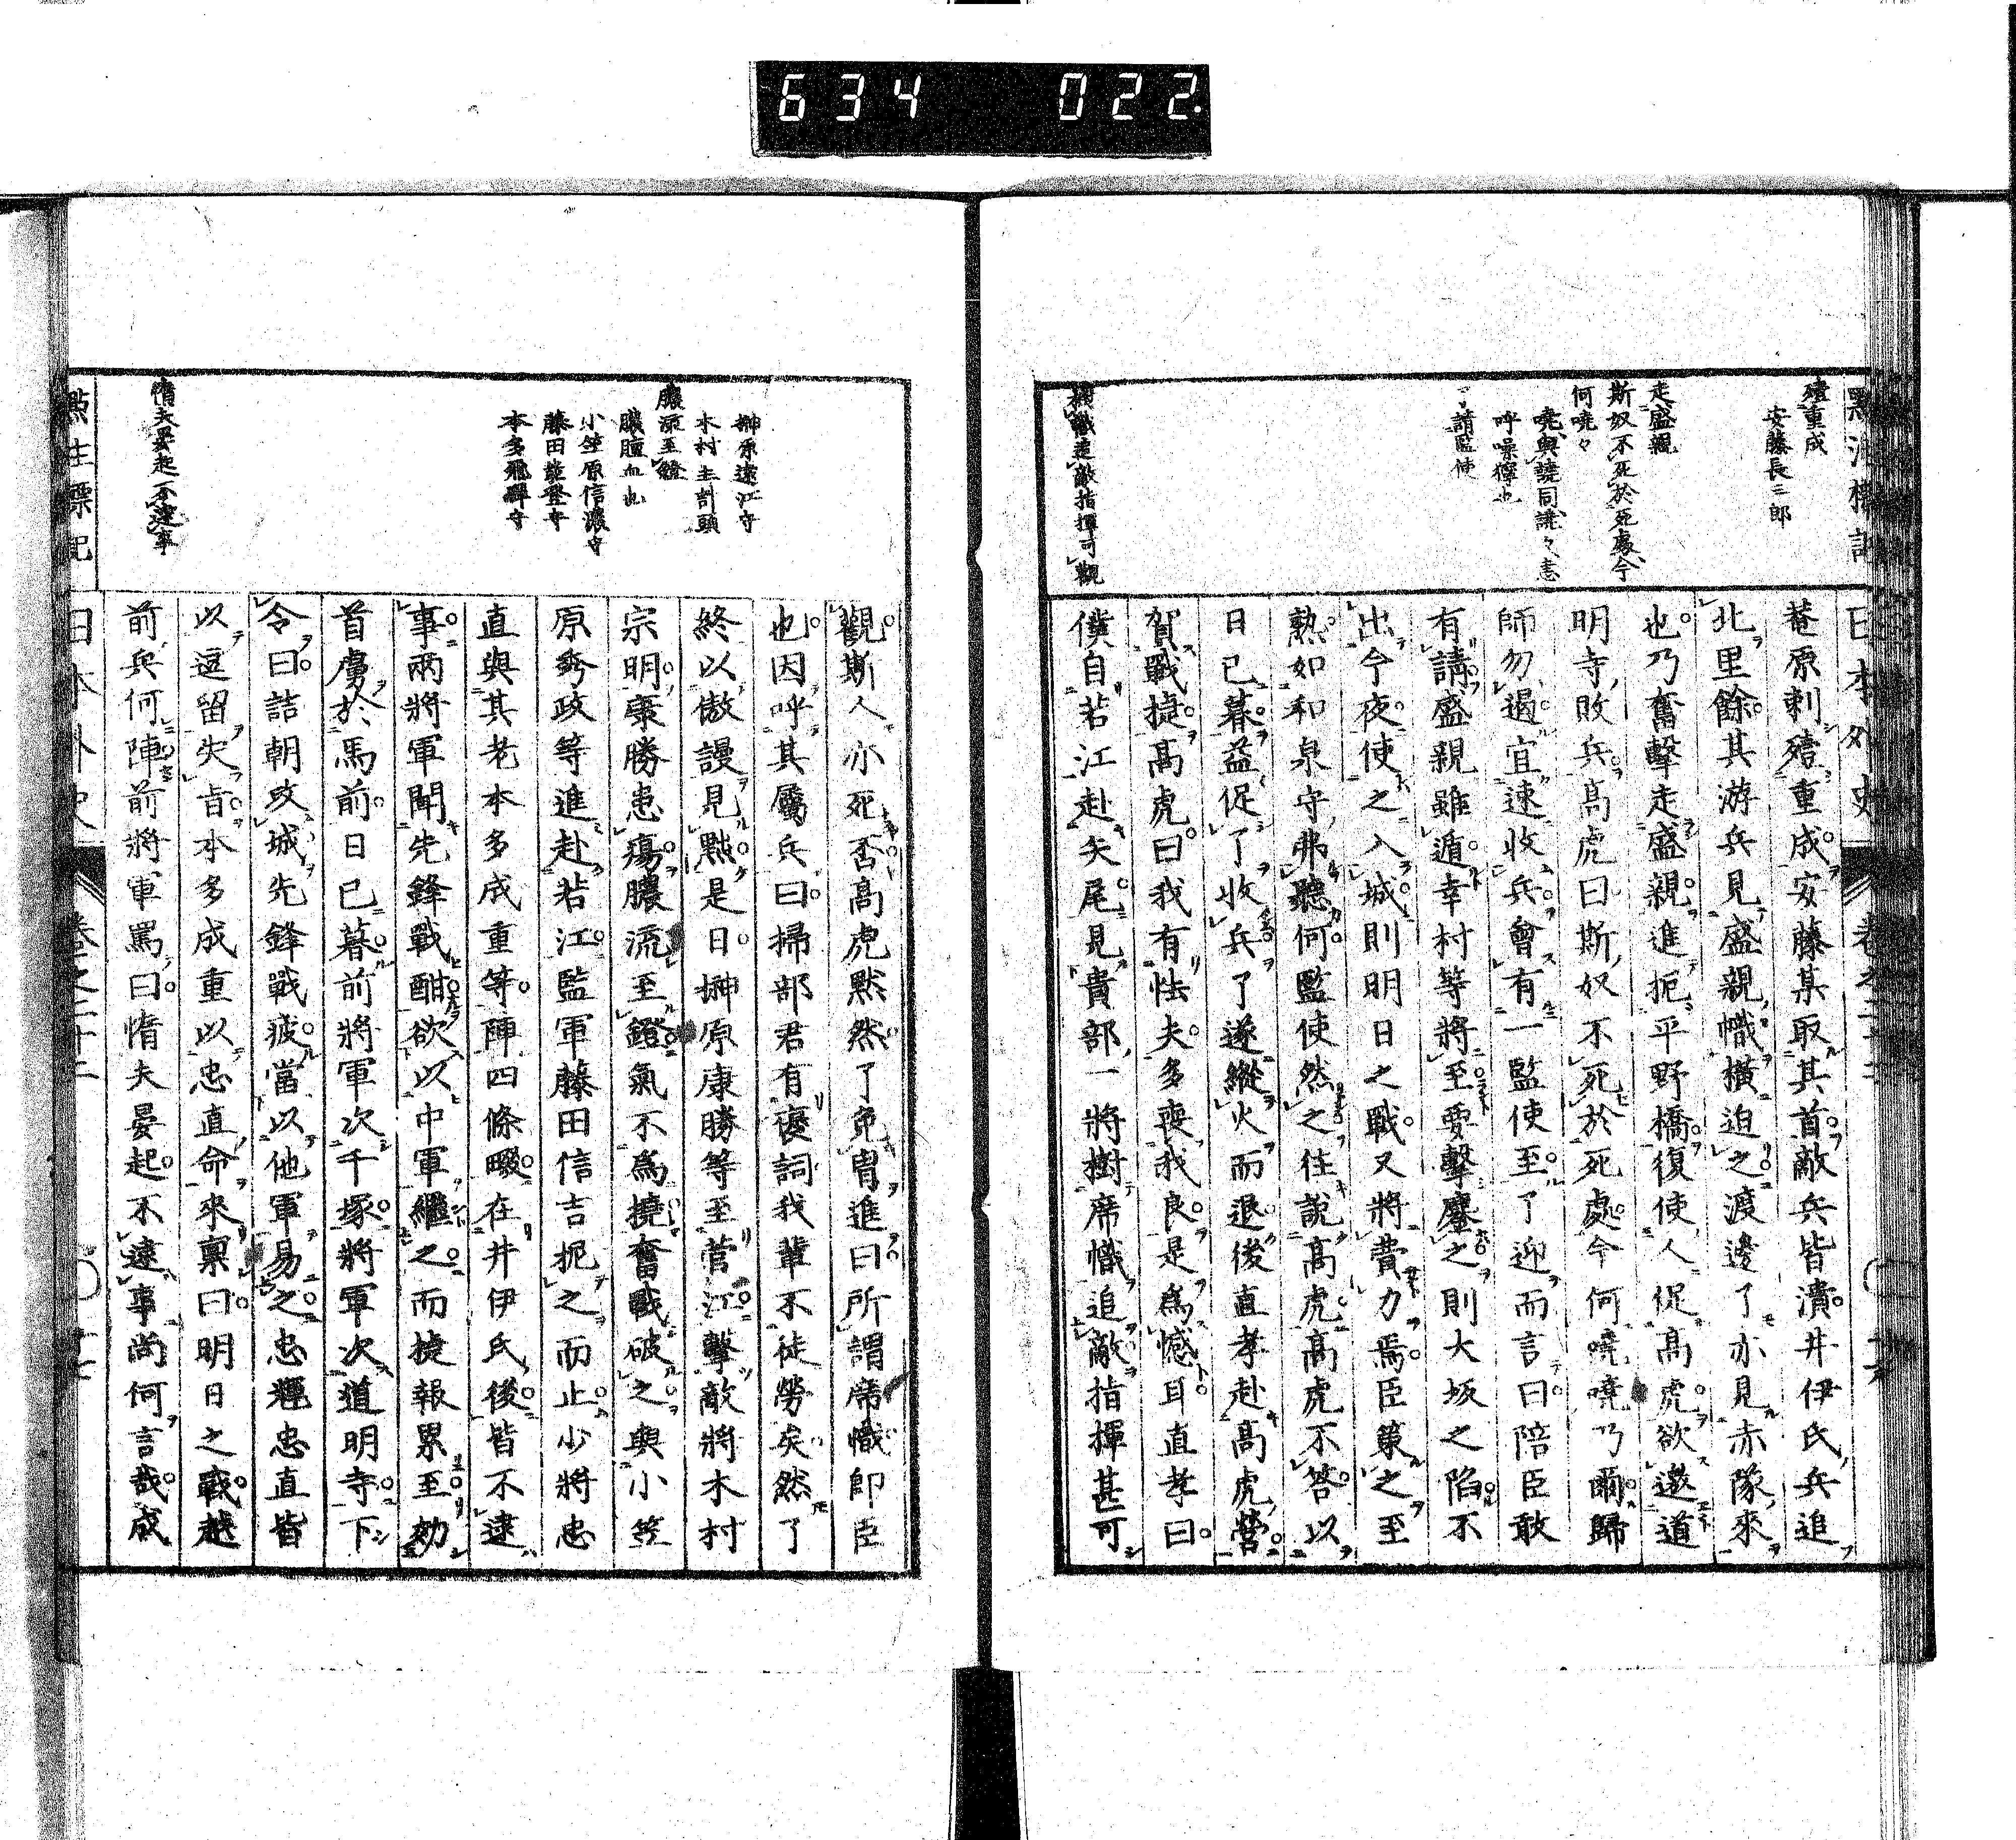 634 022.
殪重成
安藤長三郎
走盛親
斯奴不死於死處今
何嘵々
嘵與譊同譊々恚
呼噪獰也
了請監使
樹幟追敵指揮可觀
菴原刺殪重成安藤某取其首敵兵皆潰井伊氏兵追
北里餘其游兵見盛親幟橫迫之渡邊了亦見赤隊來
也乃奮擊走盛親進扼平野橋復使人促高虎欲邀道
明寺敗兵高虎曰斯奴不死於死處今何嘵嘵乃爾歸
師勿遏宜速收兵會有一監使至了迎而言曰陪臣敢
有請盛親雖遁幸村等將至要擊鏖之則大坂之陷不
出今夜使之入城則明日之戰又將費力焉臣策之至
熟如和泉守弗聽何監使然之往說高虎高虎不答以
日已暮益促了收兵了遂縱火而退後直孝赴高虎營
賀戰捷高虎曰我有怯夫多喪我良是爲憾耳直孝曰
僕自若江赴矢尾見貴部一將樹席幟追敵指揮甚可
榊原遠江守
木村主計頭
膿流至鐙
膿膻血也
小笠原信濃守
藤田能登守
本多飛驒守
惰夫晏起不逮事
觀斯人亦死否高虎默然了免冑進曰所謂席幟卽臣
也因呼其屬兵曰掃部君有褒詞我輩不徒勞矣然了
終以傲謾見黜是日榊原康勝等至菅江擊敵將木村
宗明康勝患瘍膿流至鐙氣不爲撓奮戰破之與小笠
原秀政等進赴若江監軍藤田信吉扼之而止少將忠
直與其老本多成重等陣四條畷在井伊氏後皆不逮
事兩將軍聞先鋒戰酣欲以中軍繼之而捷報累至効
首虜於馬前日已暮前將軍次千塚將軍次道明寺下
令曰詰朝攻城先鋒戰疲當以他軍易之忠輝忠直皆
以逗留失旨本多成重以忠直命來稟曰明日之戰越
前兵何陣前將軍罵曰惰夫晏起不逮事尚何言哉成